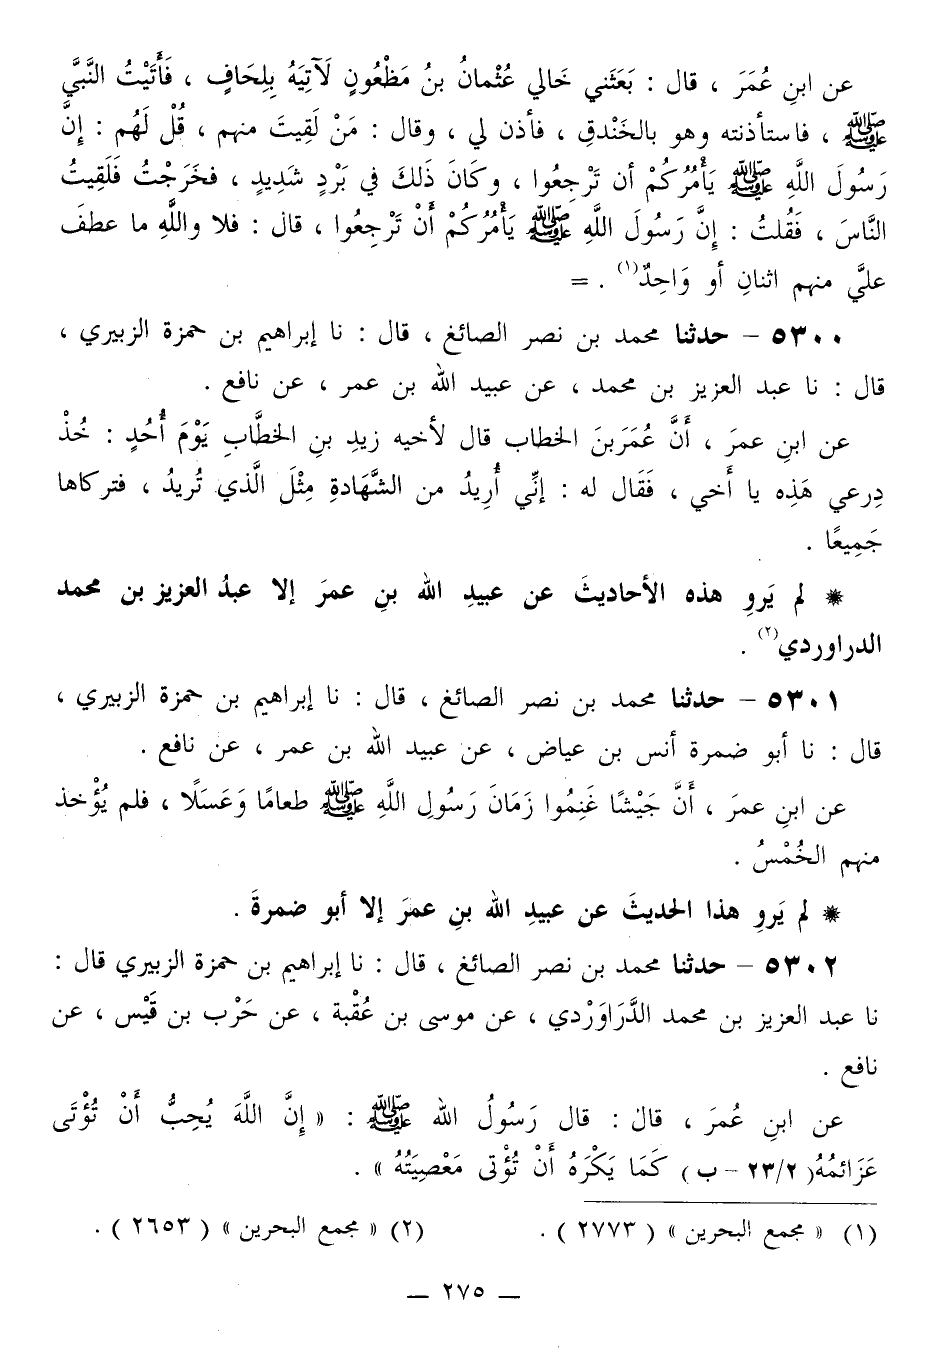 عن ابنِ عُمَرَ ، قال : بَعَثَني خَالي عُثْمانُ بنُ مَظْعُونٍ لَآتِيَهُ بِلِحَافٍ ، فَأَتَيْتُ النَّبيَّ
ﷺ ، فاستأذنته وهو بالخَنْدقِ ، فأذن لي ، وقال : مَنْ لَقِيتَ منهم ، قُلْ لَهُم : إنَّ
رَسُولَ اللَّهِ ﷺ يَأْمُرُكُمْ أن تَرْجِعُوا ، وكَانَ ذَلكَ في بَرْدٍ شَدِيدٍ ، فخَرَجْتُ فَلَقِيتُ
النَّاسَ ، فَقُلتُ : إنَّ رَسُولَ اللَّهِ ﷺ يَأْمُرُكُمْ أَنْ تَرْجِعُوا ، قال : فلا واللَّهِ ما عطفَ
عليَّ منهم اثنانِ أو وَاحِدٌ(١) . =
٥٣٠٠ – حدثنا محمد بن نصر الصائغ ، قال : نا إبراهيم بن حمزة الزبيري ،
قال : نا عبد العزيز بن محمد ، عن عبيد الله بن عمر ، عن نافع .
عن ابنِ عمرَ ، أَنَّ عُمَرَبنَ الخطاب قال لأخيه زيدِ بنِ الخطَّابِ يَوْمَ أُحُدٍ : خُذْ
دِرعي هَذِه يا أَخي ، فَقَال له : إنِّي أُرِيدُ من الشَّهَادةِ مِثْلَ الَّذي تُريدُ ، فتركاها
جَمِيعًا .
* لم يَروِ هذه الأحاديثَ عن عبيدِ الله بنِ عمرَ إلا عبدُ العزيز بن محمد
الدراوردي(٢) .
٥٣٠١ – حدثنا محمد بن نصر الصائغ ، قال : نا إبراهيم بن حمزة الزبيري ،
قال : نا أبو ضمرة أنس بن عياض ، عن عبيد الله بن عمر ، عن نافع .
عن ابنِ عمرَ ، أَنَّ جَيْشًا غَنِمُوا زَمَانَ رَسُولِ اللَّهِ ﷺ طعامًا وَعَسَلًا ، فلم يُؤْخذ
منهم الخُمْسُ .
* لم يَروِ هذا الحديثَ عن عبيدِ الله بنِ عمرَ إلا أبو ضمرةَ .
٥٣٠٢ – حدثنا محمد بن نصر الصائغ ، قال : نا إبراهيم بن حمزة الزبيري قال :
نا عبد العزيز بن محمد الدَّرَاوَرْدي ، عن موسى بن عُقْبة ، عن حَرْب بن قَيْس ، عن
نافع .
عن ابنِ عُمَرَ ، قال : قال رَسُولُ الله ﷺ : « إنَّ اللَّهَ يُحِبُّ أَنْ تُؤْتَى
عَزَائمُهُ( ٢٣/٢ – ب ) كَمَا يَكْرَهُ أَنْ تُؤْتى مَعْصِيَتُهُ » .
(١) « مجمع البحرين » ( ٢٧٧٣ ) . (٢) « مجمع البحرين » ( ٢٦٥٣ ) .
— ٢٧٥ —